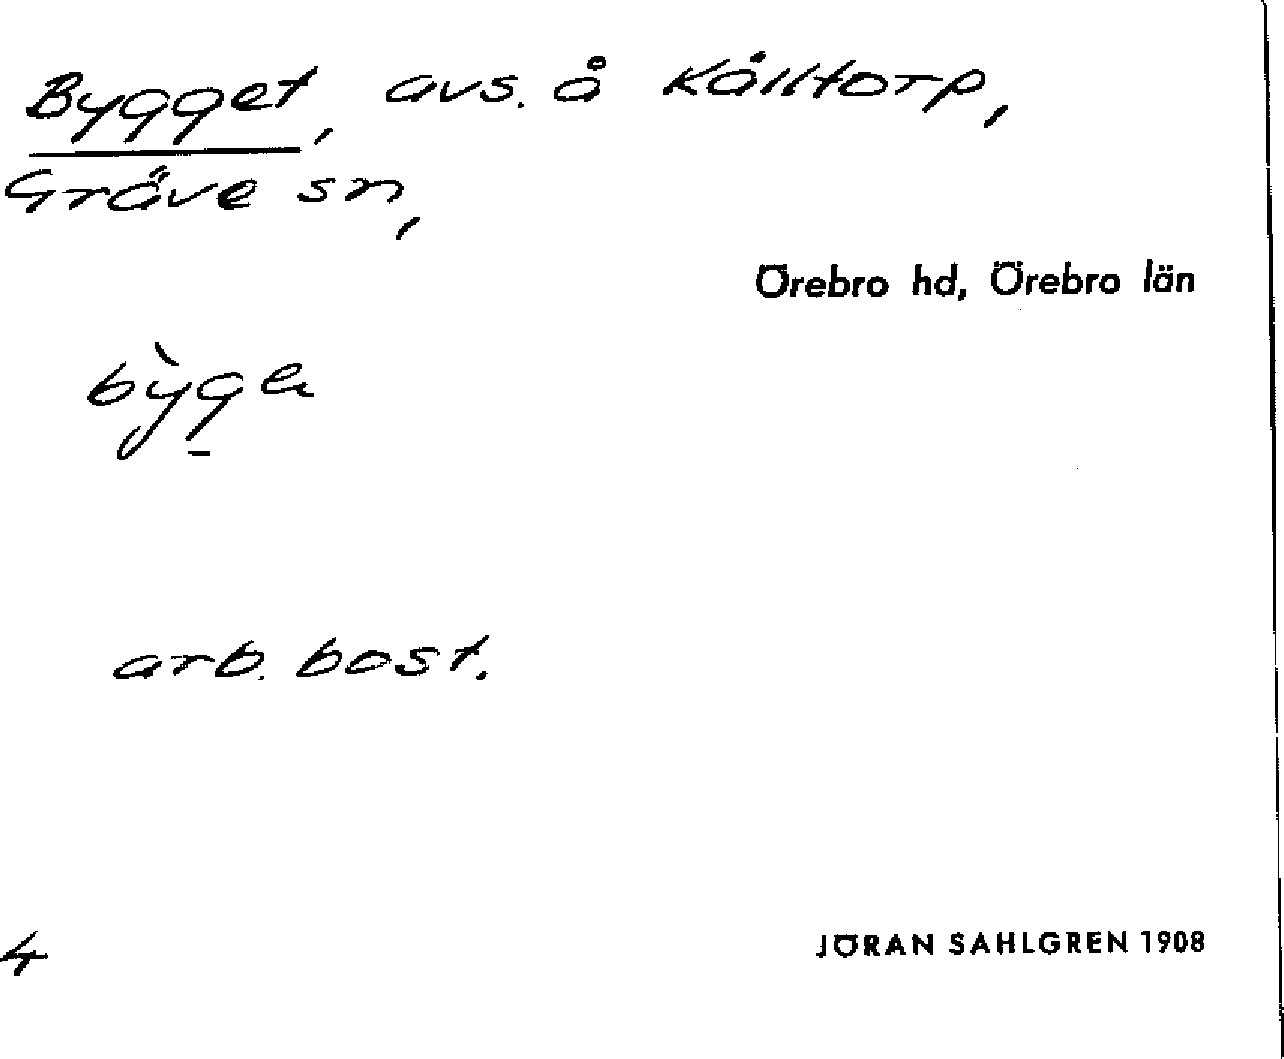 Bygget, avs. å Kålltorp,
Gräve sn,
Örebro hd, Örebro län
arb. bost.
4
JÖRAN SAHLGREN 1908